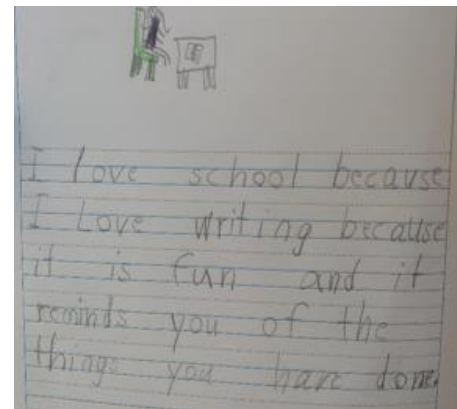 I love school because
I Love writing because
it is fun and it
reminds you of the
things you have done.